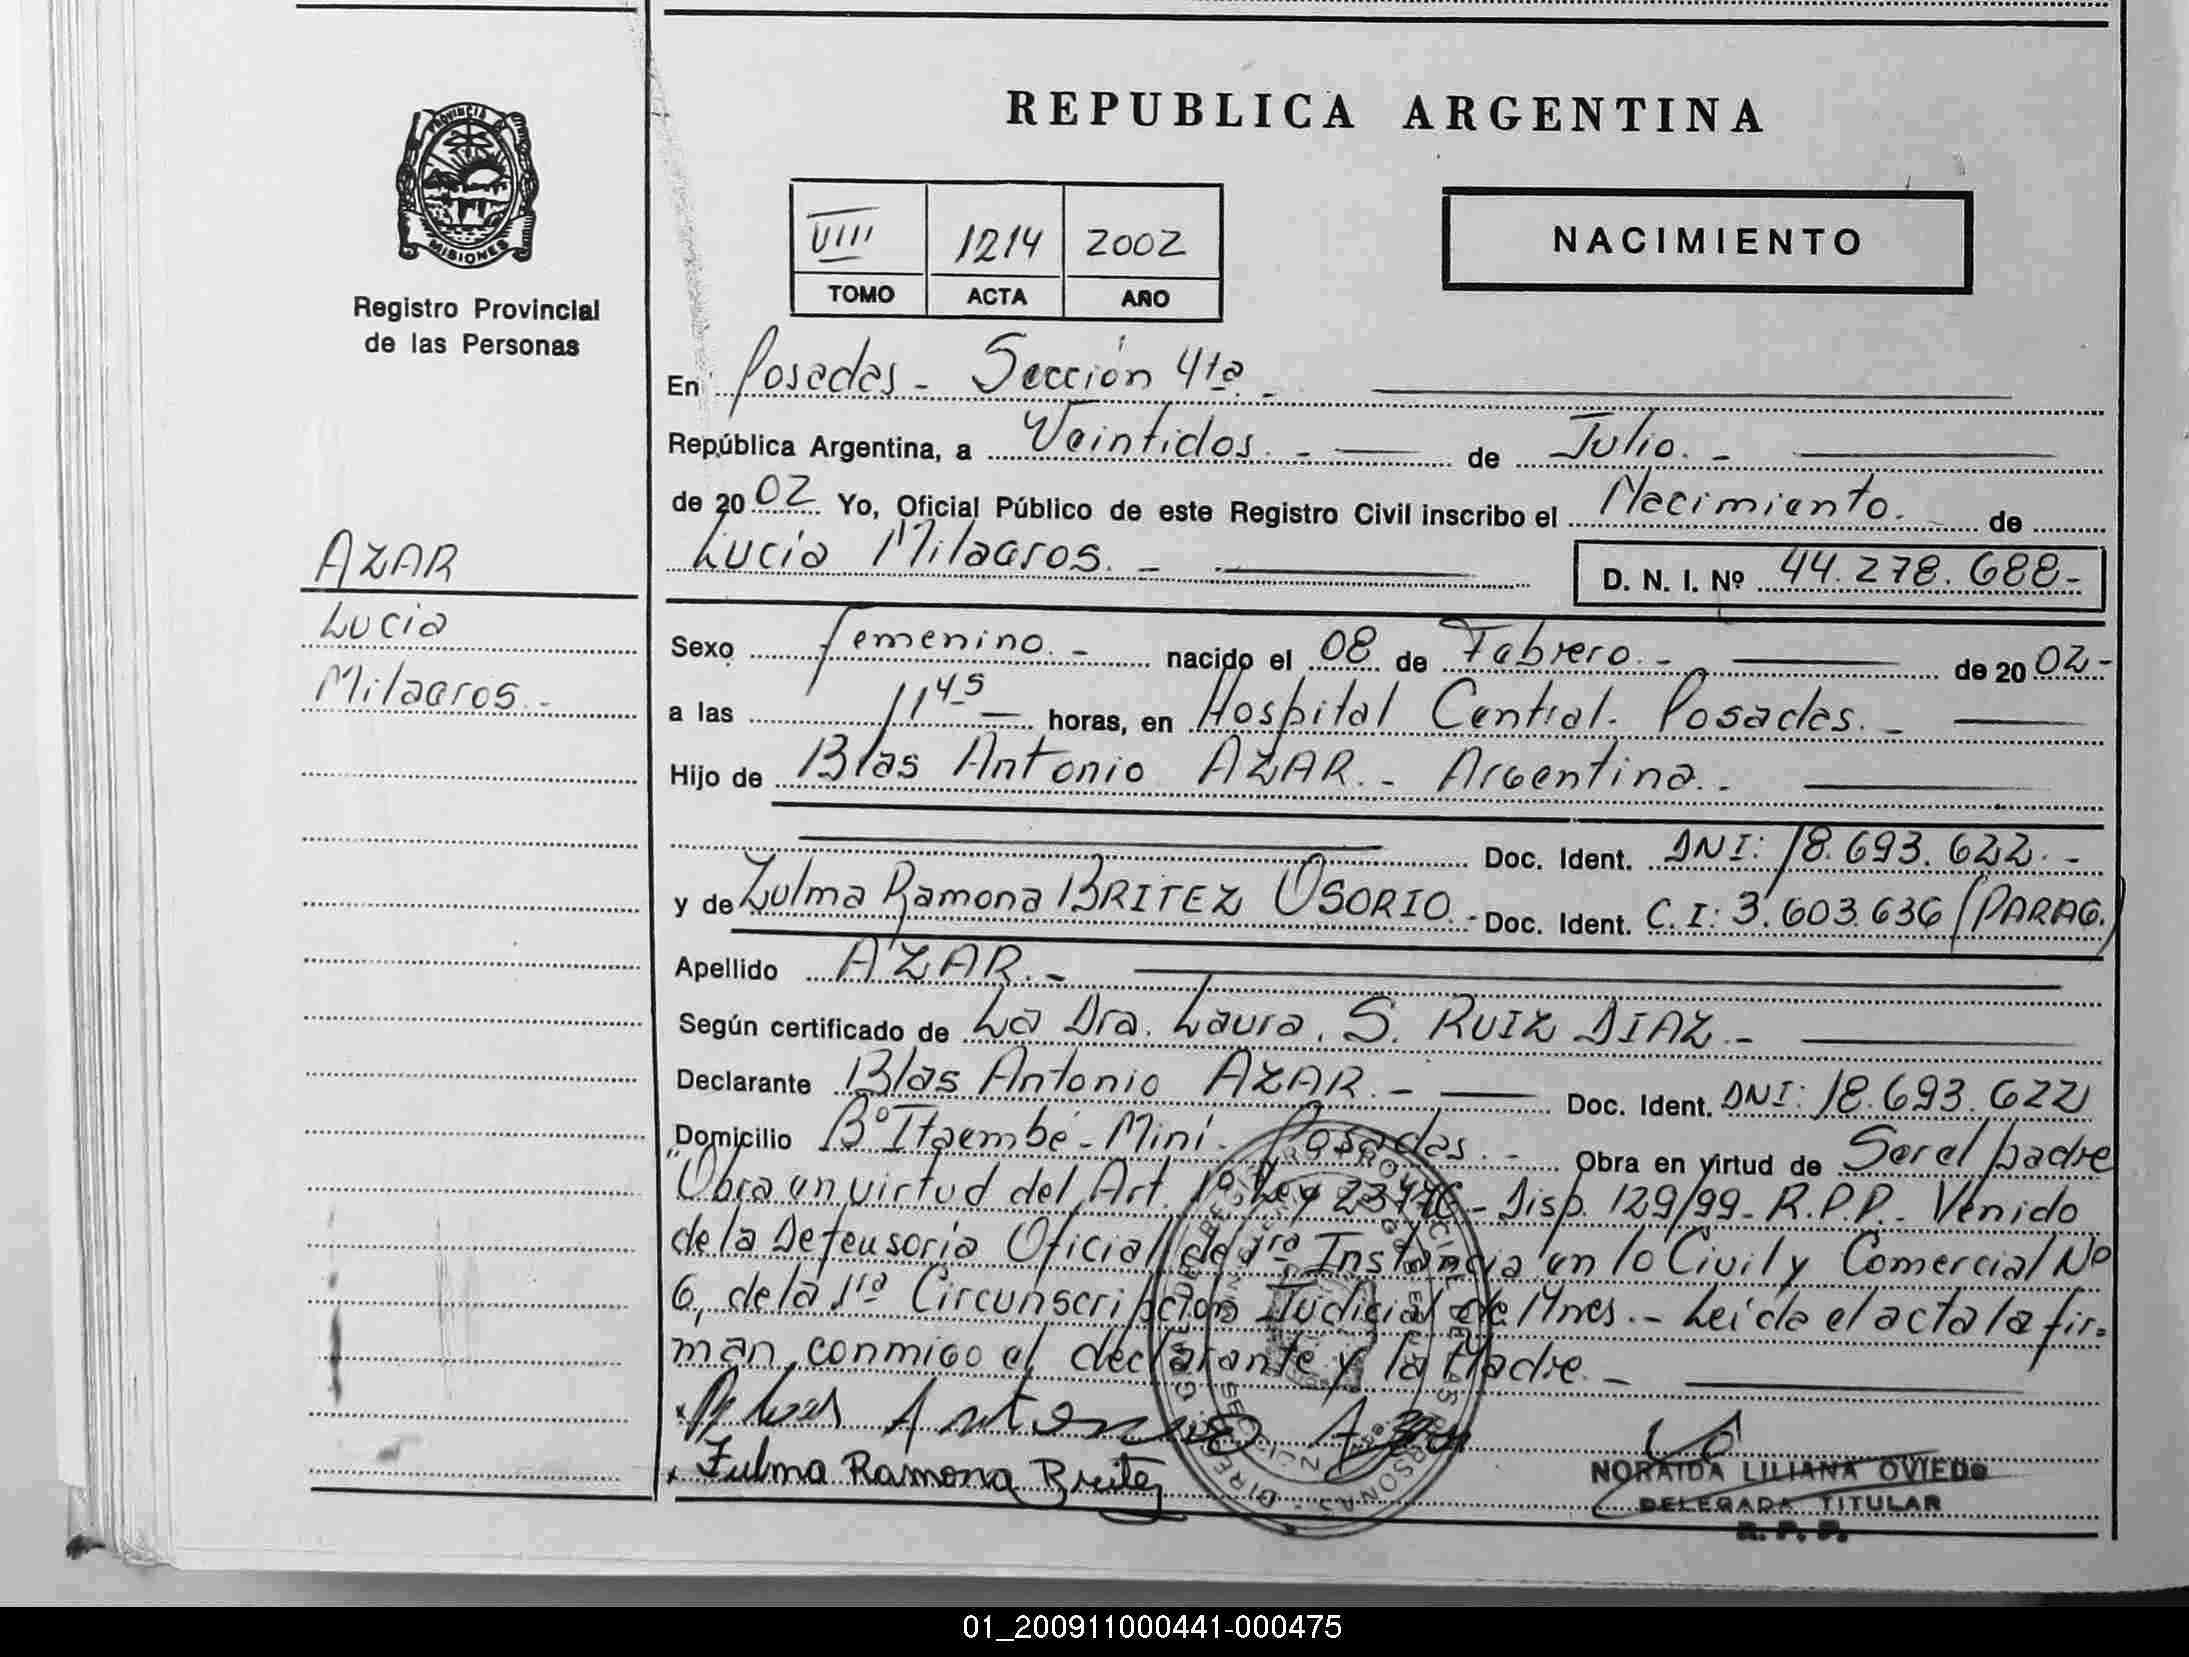 REPUBLICA ARGENTINA
PROVINCIA DE
MISIONES
Registro Provincial
de las Personas
VIII 1214 2002
TOMO ACTA AÑO
NACIMIENTO
En Posadas - Sección 4ta. -
República Argentina, a Veintidos. - de Julio. -
de 2002 Yo, Oficial Público de este Registro Civil inscribo el Nacimiento. de
Lucia Milagros. - D. N. I. Nº 44.278.688-
AZAR
Lucia
Milagros. -
Sexo femenino. - nacido el 08 de Febrero. - de 2002-
a las 11 45 horas, en Hospital Central. Posadas. -
Hijo de Blas Antonio AZAR. - Argentina. -
Doc. Ident. DNI: 18.693.622. -
y de Zulma Ramona BRITEZ OSORIO. - Doc. Ident. C.I: 3.603.636 (PARAG.)
Apellido AZAR. -
Según certificado de La Dra. Laura. S. RUIZ DIAZ. -
Declarante Blas Antonio AZAR. - Doc. Ident. DNI: 18.693.622
Domicilio Bº Itaembé - Miní - Posadas. - Obra en virtud de Ser el padre
"Obra en virtud del Art. 1º Ley - Disp. 129/99 - R.P.P. - Venido
de la Defensoria Oficial de 1ra Instancia en lo Civil y Comercial Nº
6, de la 1ra Circunscripcion Judicial de Mnes. - Leida el acta la fir=
man, conmigo el declarante y la Madre. -
Blas Antonio Azar
Zulma Ramona Britez
NORAIDA LILIANA OVIEDO
DELEGADA TITULAR
R. P. P.
01_200911000441-000475